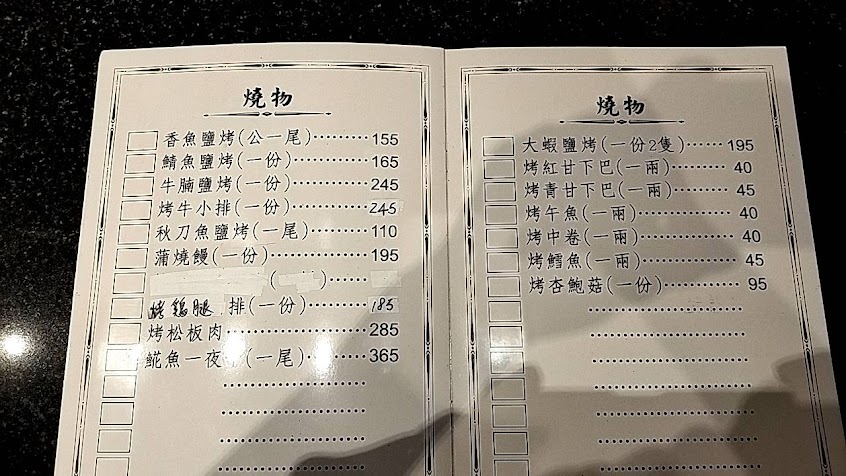 燒物
香魚鹽烤(公一尾)………155
鯖魚鹽烤(一份)…………165
牛腩鹽烤(一份)…………245
烤牛小排(一份)…………245
秋刀魚鹽烤(一尾)………110
蒲燒饅(一份)……………195
烤鷄腿 排(一份)………185
烤松板肉…………………285
魷魚一夜 (一尾)………365
燒物
大蝦鹽烤(一份2隻)……195
烤紅甘下巴(一兩)………40
烤青甘下巴(一兩)………45
烤午魚(一兩)……………40
烤中卷(一兩)……………40
烤鱈魚(一兩)……………45
烤杏鮑菇(一份)…………95